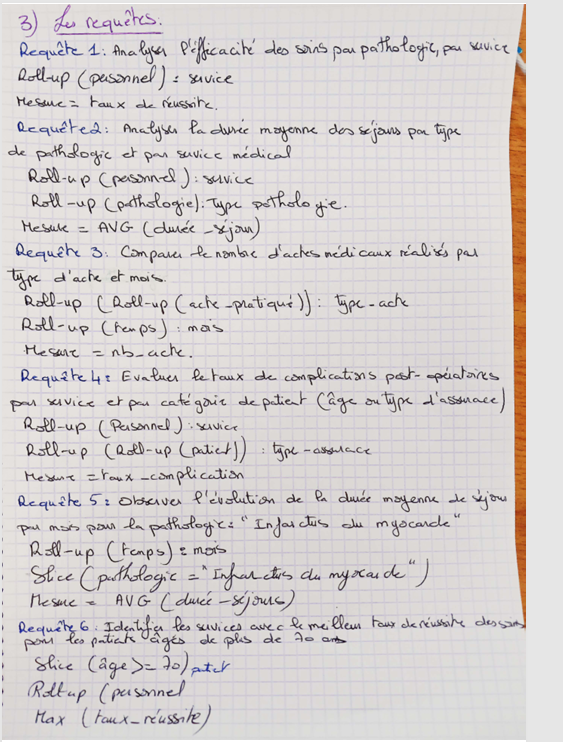 3) Les requêtes:
Requête 1: Analyser l'éfficacité des soins par pathologie, par service
Roll-up (personnel) : service
Mesure = taux de réussite.
Requête 2: Analyser la durée moyenne des séjours par type
de pathologie et par service médical
Roll-up (personnel) : service
Roll-up (pathologie) : Type pathologie.
Mesure = AVG (durée_séjour)
Requête 3: Comparer le nombre d'actes médicaux réalisés par
type d'acte et mois.
Roll-up (Roll-up (acte_pratiqué)) : type_acte
Roll-up (temps) : mois
Mesure = nb_acte.
Requête 4: Evaluer le taux de complications post-opératoires
par service et par catégorie de patient (âge ou type d'assurance)
Roll-up (Personnel) : service
Roll-up (Roll-up (patient)) : type-assurance
Mesure = taux_complication
Requête 5: Observer l'évolution de la durée moyenne de séjour
par mois pour la pathologie: "Infarctus du myocarde"
Roll-up (temps) = mois
Slice (pathologie = "Infarctus du myocarde")
Mesure = AVG (durée_séjours)
Requête 6: Identifier les services avec le meilleur taux de réussite des soins
pour les patients âgés de plus de 70 ans
Slice (âge >= 70) patient
Roll-up (personnel
Max (taux_réussite)